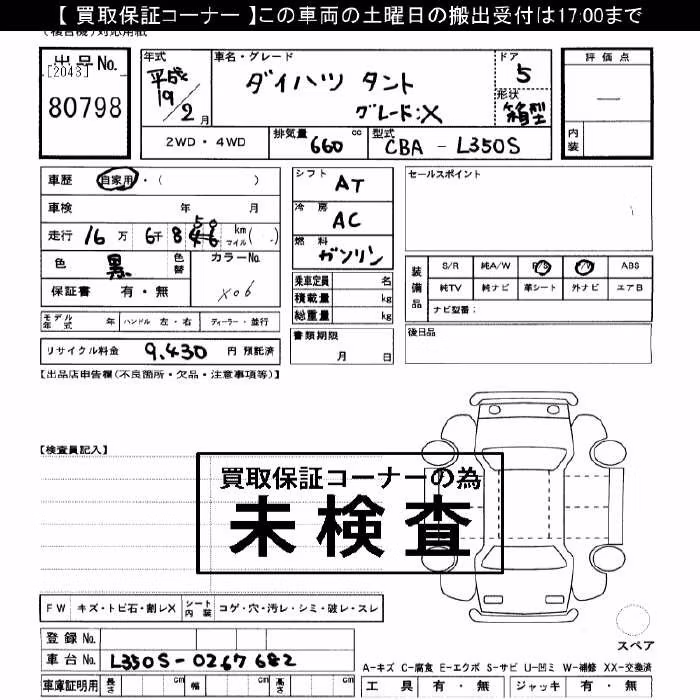 【 買取保証コーナー 】この車両の土曜日の搬出受付は17:00まで
(複合機)対応用紙
出品No.
[2043]
80798
年式
平成
19
2月
車名・グレード
ダイハツ タント
グレード:X
ドア
5
形状
箱型
評価点
—
内装
2WD・4WD
排気量 660 cc
型式 CBA - L350S
車歴 自家用・( )
車検 年 月
走行 16万 6千 8 50 km マイル ( )
色 黒
色替
カラーNo.
X06
保証書 有・無
モデル年式 年 ハンドル 左・右 ディーラー・並行
リサイクル料金 9,430 円 預託済
シフト AT
冷房 AC
燃料 ガソリン
乗車定員 名
積載量 kg
総重量 kg
書類期限
月 日
セールスポイント
装備品 S/R 純A/W P/S P/W ABS
純TV 純ナビ 革シート 外ナビ エアB
ナビ型番:
後日品
【出品店申告欄(不良箇所・欠品・注意事項等)】
【検査員記入】
買取保証コーナーの為
未検査
FW キズ・トビ石・割レX シート内装 コゲ・穴・汚レ・シミ・破レ・スレ
登録No.
車台No. L350S-0267682
車庫証明用 長さ cm 幅 cm 高さ cm
スペア
A-キズ C-腐食 E-エクボ S-サビ U-凹ミ W-補修 XX-交換済
工具 有・無 ジャッキ 有・無